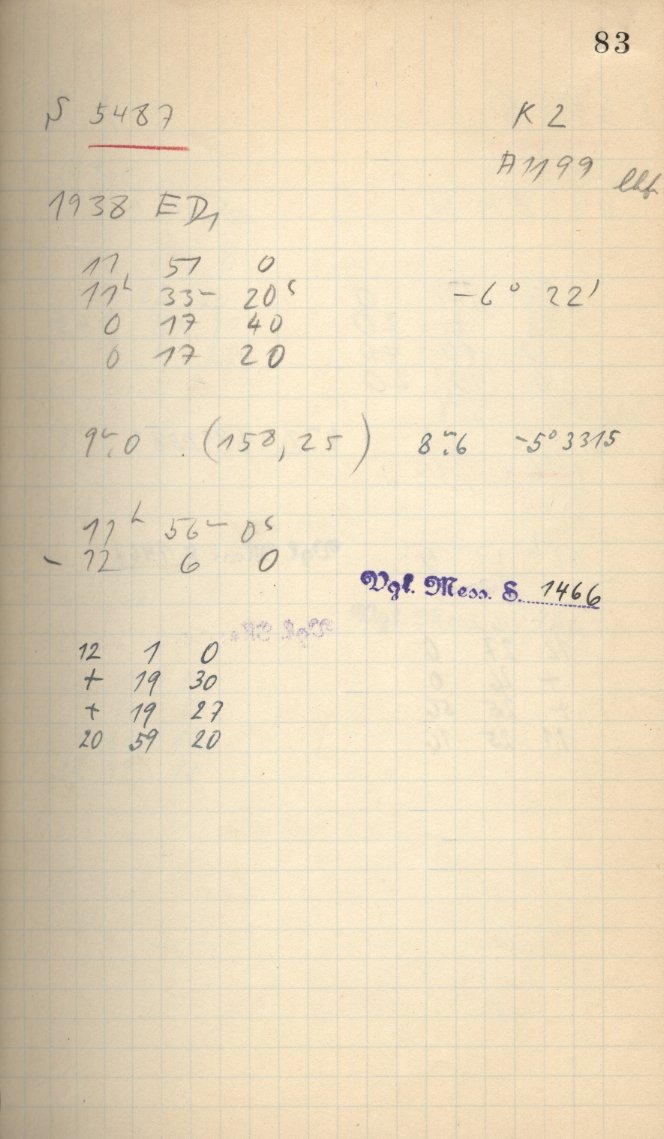 83
S 5487 K 2
A 1199
1938 ED₁
11 51 0
11ʰ 33ᵐ 20ˢ -6° 22'
0 17 40
0 17 20
9ᵐ,0 (158,25) 8ᵐ,6 -5° 3315
11ʰ 56ᵐ 0ˢ
- 12 6 0
Vgl. Mess. S. 1466
12 1 0
+ 19 30
+ 19 27
20 59 20